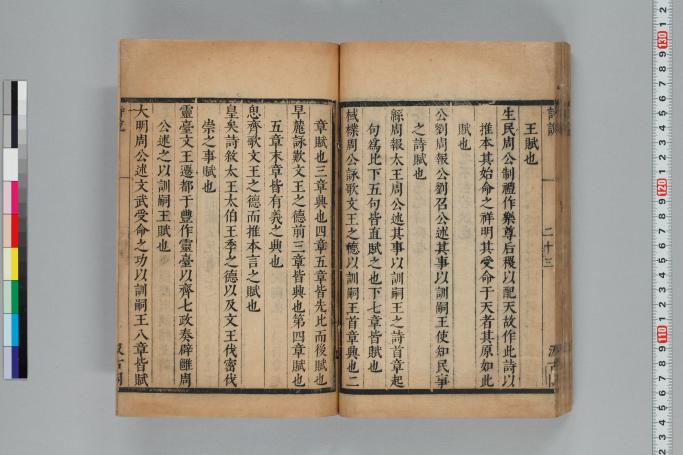 王賦也
生民周公制禮作樂尊后稷以配天故作此詩以
推本其始命之祥明其受命于天者其原如此
賦也
公劉周報公劉召公述其事以訓嗣王使知民事
之詩賦也
緜周報太王周公述其事以訓嗣王之詩首章起
句爲比下五句皆直賦之也下七章皆賦也
棫樸周公詠歌文王之德以訓嗣王首章典也二
二十三
章賦也三章典也四章五章皆先比而後賦也
旱麓詠歎文王之德前三章皆典也第四章賦也
五章末章皆有義之典也
思齊歌文王之德而推本言之賦也
皇矣詩敘太王太伯王季之德以及文王伐密伐
崇之事賦也
靈臺文王遷都于豐作靈臺以齊七政奏辟雝周
公述之以訓嗣王賦也
大明周公述文武受命之功以訓嗣王八章皆賦